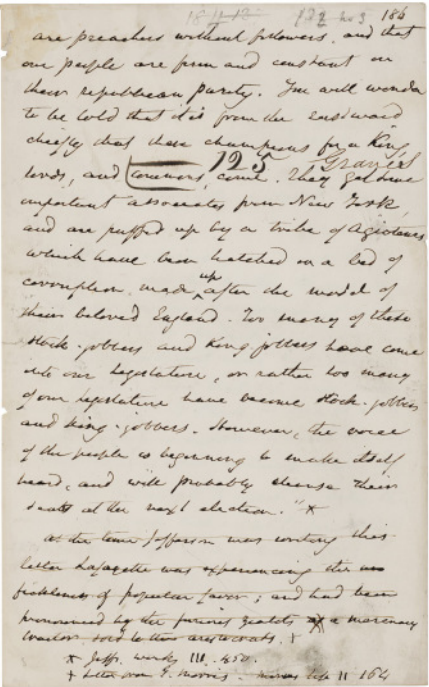 186
are preachers without followers, and that
our people are firm and constant in
their republican purity. You will wonder
to be told that it is from the eastward
chiefly that these champions for a King,
125 Graves
lords, and commons, come. They get some
important associates from New York,
and are puffed up by a tribe of Agioteurs
which have been hatched in a bed of
corruption made up after the model of
their beloved England. Too many of these
stock-jobbers and King jobbers have come
into our legislature, or rather too many
of our legislature have become stock-jobbers
and king-jobbers. However, the voice
of the people is beginning to make itself
heard, and will probably cleanse their
seats at the next election." *
At the time Jefferson was writing this
letter Lafayette was experiencing the
fickleness of popular favor; and had been
pronounced by the furious zealots a mercenary
traitor, sold to the aristocrats. +
* Jeff. works III. 450.
+ Letter Gov. Morris. II 164